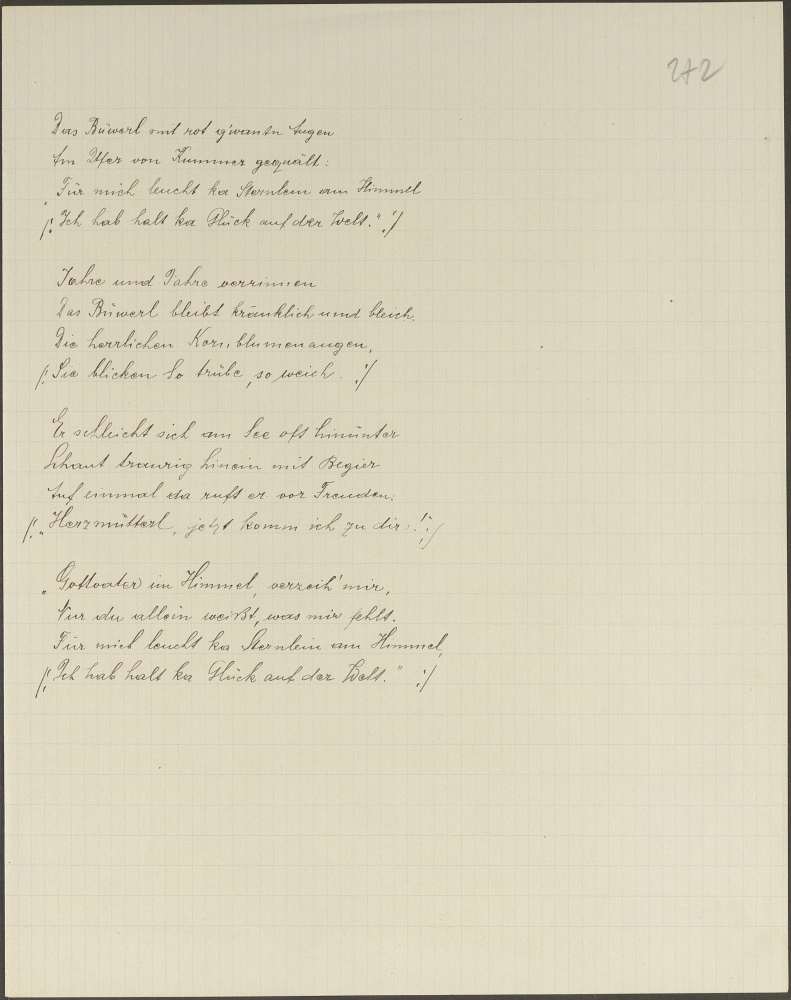 272
Das Büwerl mit rot g'wantn Augen
Am Ufer von Kummer gequält:
„Für mich leucht ka Sternlein am Himmel
/: Ich hab halt ka Glück auf der Welt." :/
Jahre und Jahre verrinnen
Das Büwerl bleibt kränklich und bleich.
Die herrlichen Kornblumenaugen,
/: Sie blicken so trübe, so weich. :/
Er schleicht sich am See oft hinunter
Schaut traurig hinein mit Begier
Auf einmal da ruft er vor Freuden:
/: „Herzmütterl, jetzt komm ich zu dir! :/
„Gottvater im Himmel, verzeih' mir,
Nur du allein weißt, was mir fehlt.
Für mich leucht ka Sternlein am Himmel,
/: Ich hab halt ka Glück auf der Welt." :/